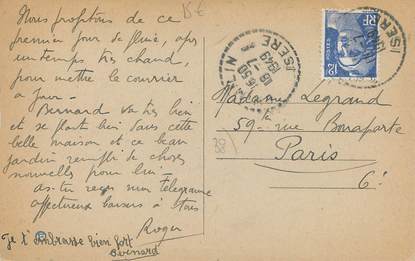 Nous profitons de ce
premier jour de pluie, après
un temps très chaud,
pour mettre le courrier
à jour -
Bernard va très bien
et se plait bien dans cette
belle maison et ce beau
jardin rempli de choses
nouvelles pour lui -
as-tu reçu mon télégramme
affectueux baisers à tous
Roger
Je t'embrasse bien fort
Bernard
15€
ISERE
1949
POSTES
RF
ISERE
Madame Legrand
59 - rue Bonaparte
Paris
6e